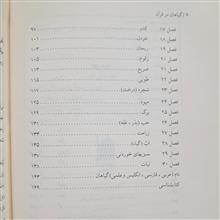 ۶ گیاهان در قرآن
فصل ۱۷ کدو ۹۷
فصل ۱۸ خردل ۱۰۱
فصل ۱۹ ریحان ۱۰۳
فصل ۲۰ زقوم ۱۰۵
فصل ۲۱ ضریع ۱۰۹
فصل ۲۲ طوبی ۱۱۱
فصل ۲۳ شجره (درخت) ۱۱۵
فصل ۲۴ میوه ۱۱۷
فصل ۲۵ برگ ۱۲۵
فصل ۲۶ حب (بذر ، غله) ۱۲۷
فصل ۲۷ زراعت ۱۳۱
فصل ۲۸ اب (گیاه) ۱۳۳
فصل ۲۹ سبزیهای خوردنی ۱۳۵
فصل ۳۰ نبات ۱۳۷
نام (عربی ، فارسی ، انگلیسی وعلمی) گیاهان ۱۴۳
کتابشناسی ۱۴۹